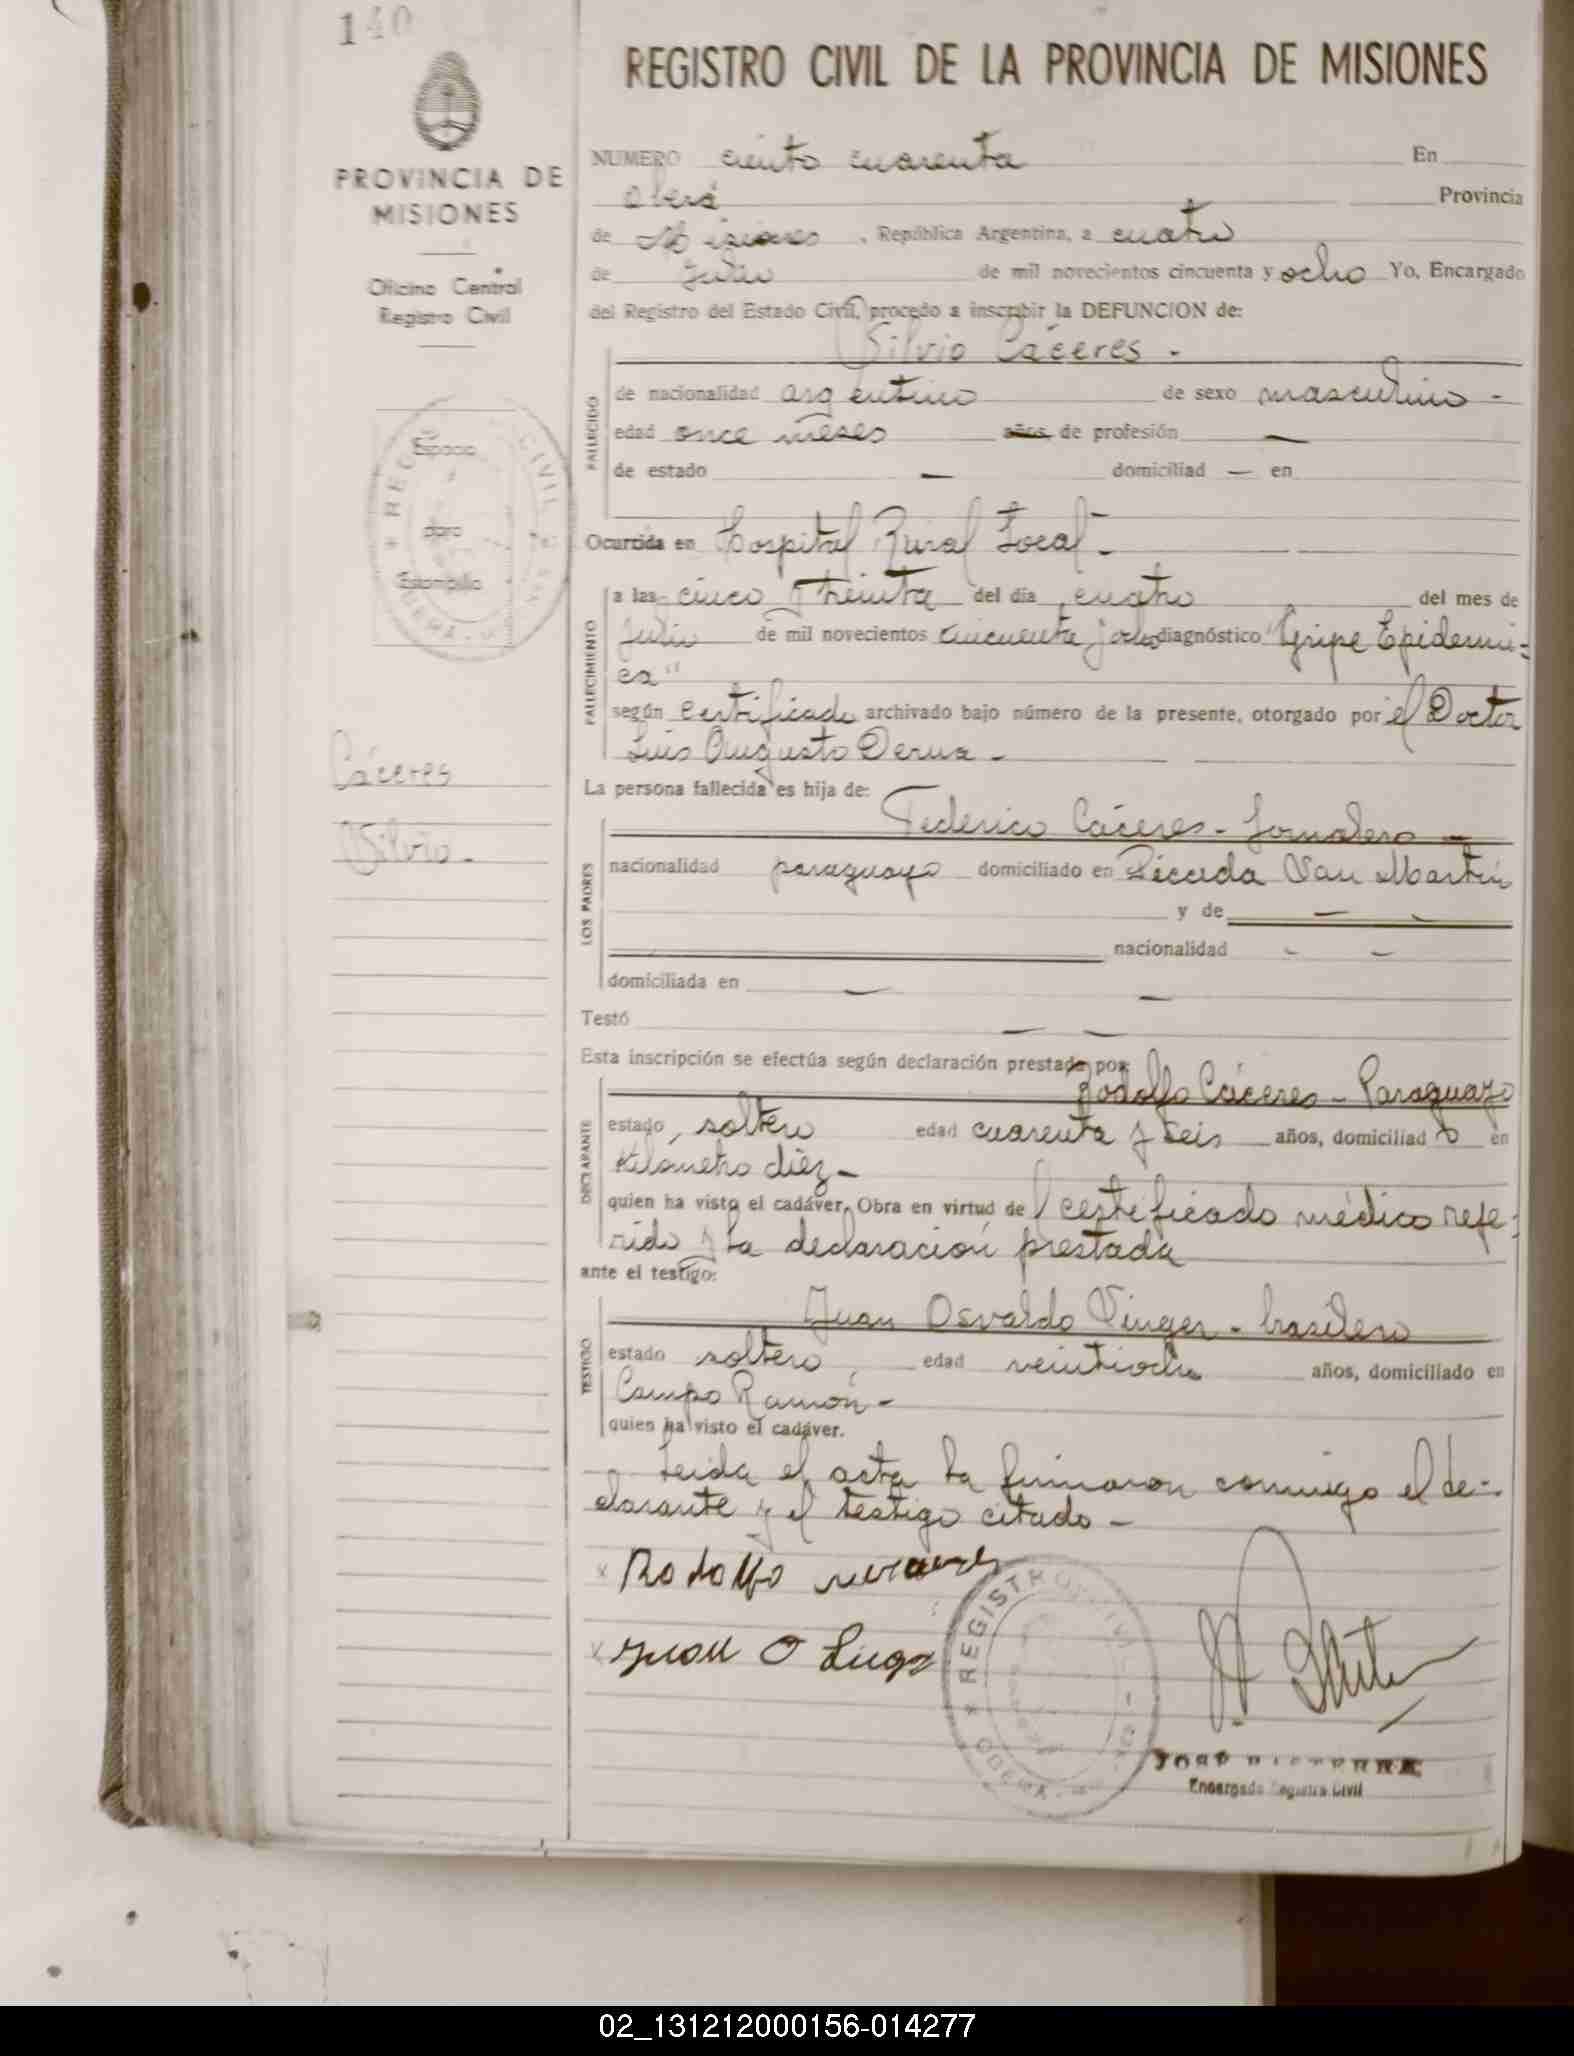 140
REGISTRO CIVIL DE LA PROVINCIA DE MISIONES
PROVINCIA DE
MISIONES
Oficina Central
Registro Civil
Espacio
para
Estampilla
Cáceres
Silvio.
NUMERO ciento cuarenta En
Oberá Provincia
de Misiones, República Argentina, a cuatro
de Julio de mil novecientos cincuenta y ocho Yo, Encargado
del Registro del Estado Civil, procedo a inscribir la DEFUNCION de:
Silvio Cáceres -
FALLECIDO
de nacionalidad argentino de sexo masculino -
edad once meses años de profesión —
de estado — domiciliad — en
Ocurrida en Hospital Rural Local -
FALLECIMIENTO
a las cinco y treinta del día cuatro del mes de
Julio de mil novecientos cincuenta y ocho diagnóstico "Gripe Epidemi-
ca"
según certificado archivado bajo número de la presente, otorgado por el Doctor
Luis Augusto -
La persona fallecida es hija de:
LOS PADRES
Federico Cáceres - Jornalero -
nacionalidad paraguayo domiciliado en Picada San Martín
y de — -
nacionalidad - -
domiciliada en — —
Testó — —
Esta inscripción se efectúa según declaración prestada por:
DECLARANTE
Rodolfo Cáceres - Paraguayo
estado, soltero edad cuarenta y seis años, domiciliad o en
Kilometro diez -
quien ha visto el cadáver. Obra en virtud del certificado médico refe-
rido y la declaración prestada
ante el testigo:
TESTIGO
Juan Osvaldo - brasilero
estado soltero, edad veintiocho años, domiciliado en
Campo Ramón -
quien ha visto el cadáver.
Leida el acta la firmaron conmigo el de-
clarante y el testigo citado -
x Rodolfo
x Juan O
REGISTRO CIVIL
JOSE
Encargado Registro Civil
02_131212000156-014277